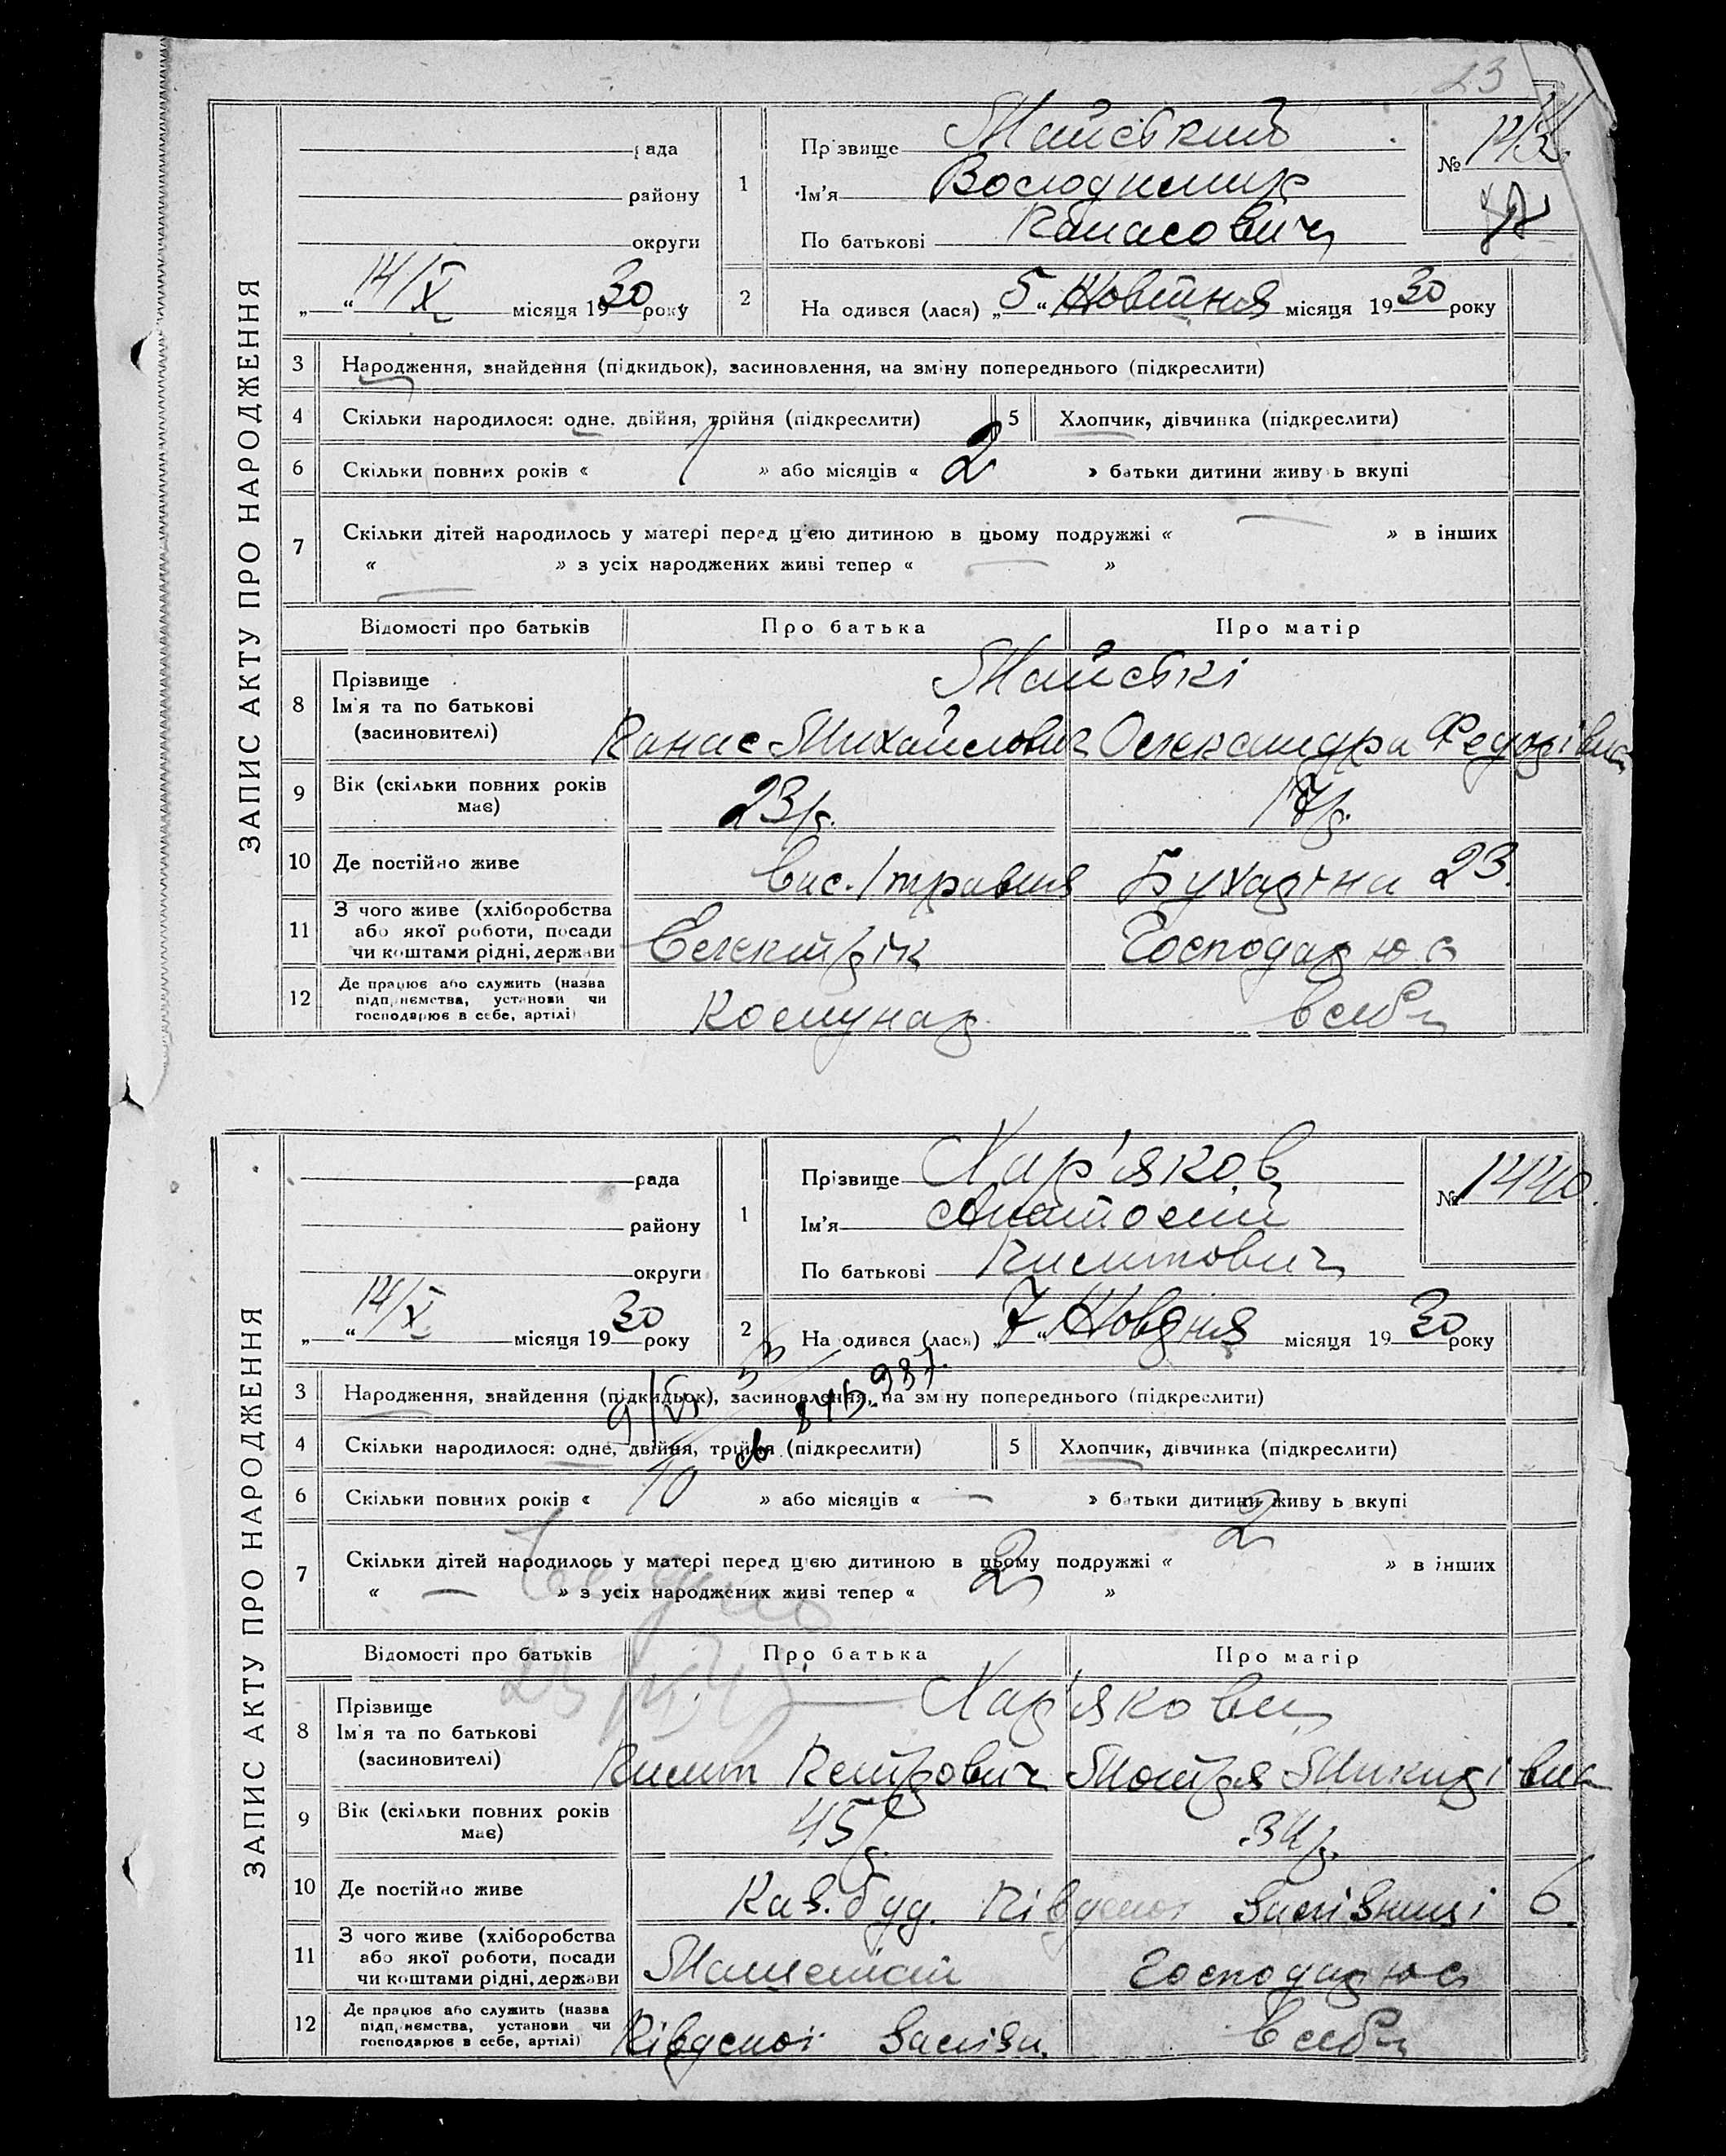 23
ЗАПИС АКТУ ПРО НАРОДЖЕННЯ
рада
району
округи
„ “ 14/X місяця 1930 року
1 Прізвище Майський
Ім'я Володимир
По батькові Панасович
№
2 На одився (лася) „5“ Жовтня місяця 1930 року
3 Народження, знайдення (підкидьок), засиновлення, на зміну попереднього (підкреслити)
4 Скільки народилося: одне, двійня, трійня (підкреслити) 5 Хлопчик, дівчинка (підкреслити)
6 Скільки повних років « 1 » або місяців « 2 » батьки дитини живу ь вкупі
7 Скільки дітей народилось у матері перед цією дитиною в цьому подружжі « — » в інших
« — » з усіх народжених живі тепер « — »
Відомості про батьків Про батька Про матір
8 Прізвище Майські
Ім'я та по батькові
(засиновителі) Панас Михайлович Олександра Федорівна
9 Вік (скільки повних років має) 23 р. 17 р.
10 Де постійно живе вис. 1 травня Бухаріна 23.
11 З чого живе (хліборобства
або якої роботи, посади
чи коштами рідні, держави Електрік Господарює
12 Де працює або служить (назва
підприємства, установи чи
господарює в себе, артілі) Комунар. в себе
ЗАПИС АКТУ ПРО НАРОДЖЕННЯ
рада
району
округи
„ “ 14/X місяця 1930 року
1 Прізвище Хар'яков
Ім'я Анатолій
По батькові Пилипович
№ 1440.
2 На одився (лася) „7“ Жовтня місяця 1930 року
3 Народження, знайдення (підкидьок), засиновлення, на зміну попереднього (підкреслити)
4 Скільки народилося: одне, двійня, трійня (підкреслити) 5 Хлопчик, дівчинка (підкреслити)
6 Скільки повних років « 10 » або місяців « — » батьки дитини живу ь вкупі
7 Скільки дітей народилось у матері перед цією дитиною в цьому подружжі « 2 » в інших
« — » з усіх народжених живі тепер « 2 »
Відомості про батьків Про батька Про матір
8 Прізвище Хар'якови
Ім'я та по батькові
(засиновителі) Пилип Петрович Мотря Микитівна
9 Вік (скільки повних років має) 45 р. 34 р.
10 Де постійно живе Каз. буд. Південої Залізниці 6.
11 З чого живе (хліборобства
або якої роботи, посади
чи коштами рідні, держави Машиніст Господарює
12 Де працює або служить (назва
підприємства, установи чи
господарює в себе, артілі) Південої Залізн. в себе